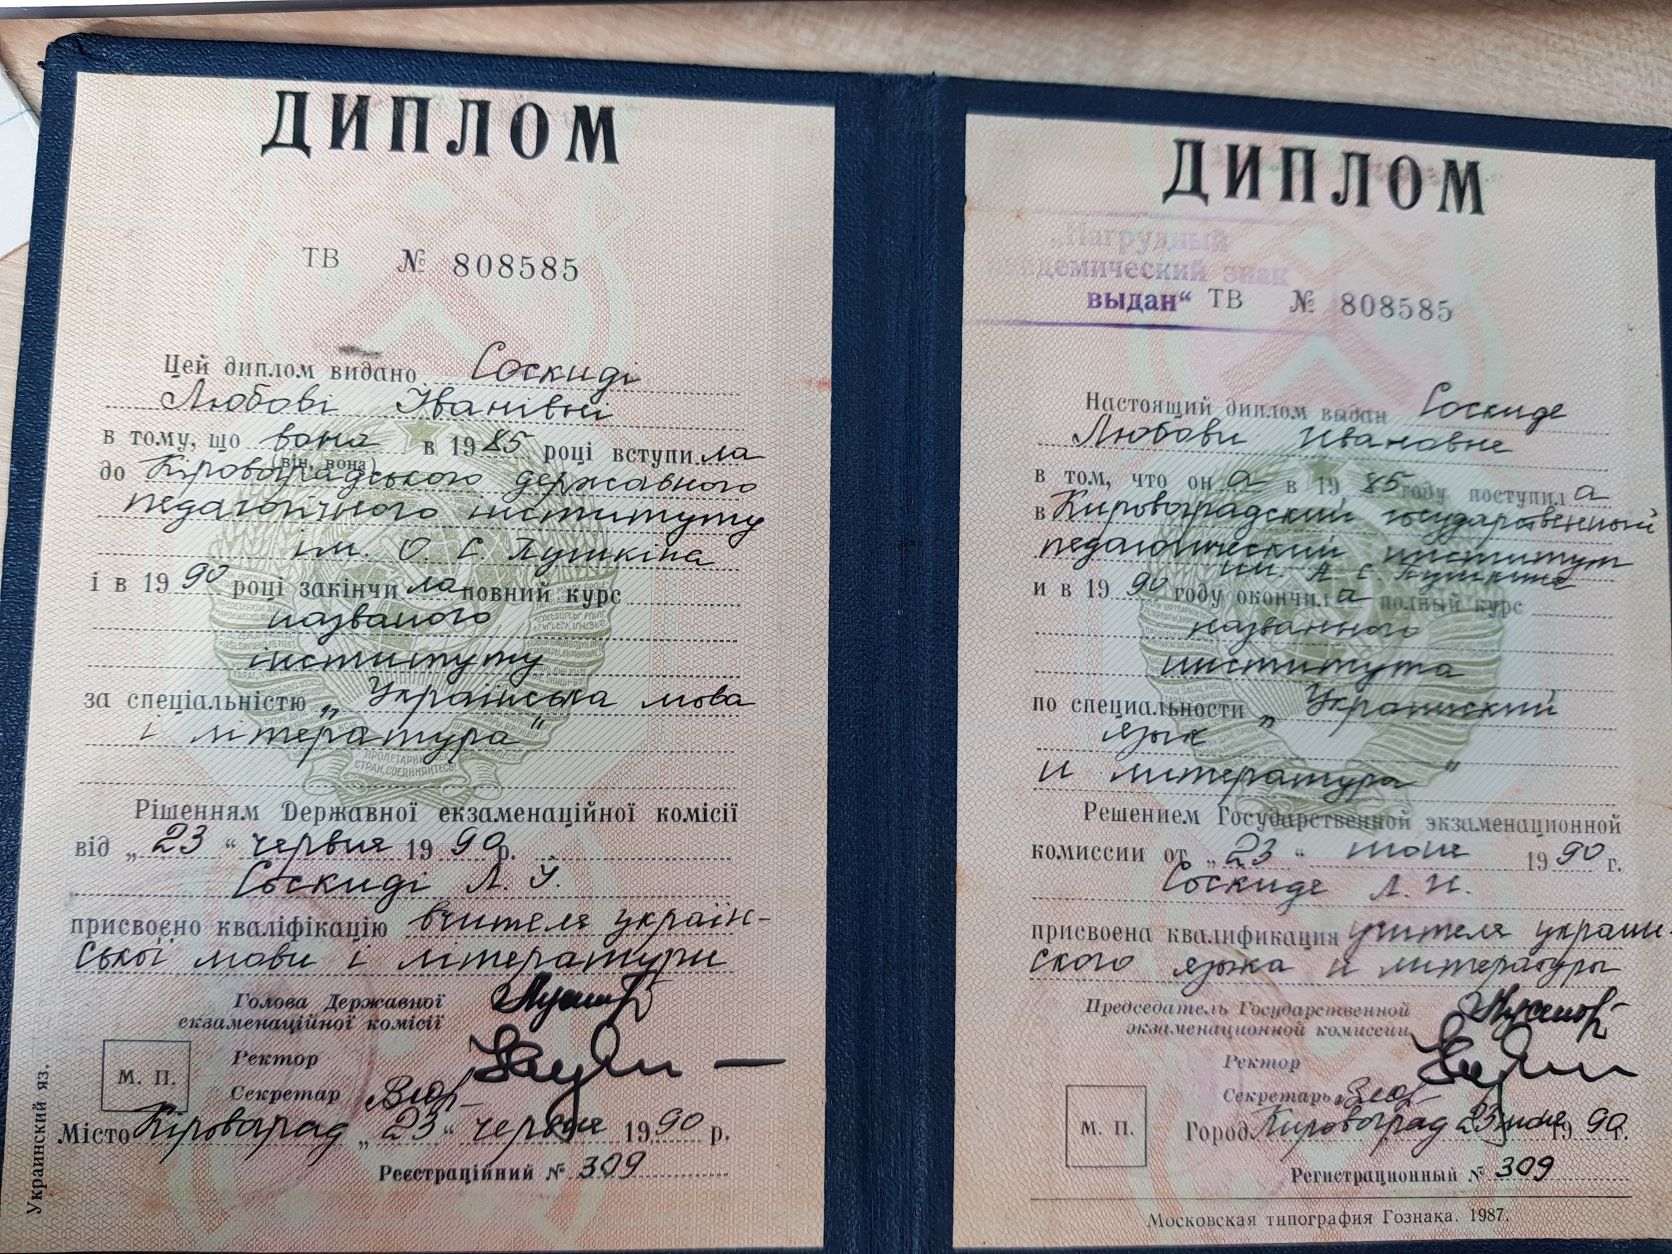 ДИПЛОМ
ТВ № 808585
Цей диплом видано Соскиді
Любові Іванівні
в тому, що вона в 1985 році вступила
(він, вона)
до Кіровоградського державного
педагогічного інституту
ім. О. С. Пушкіна
і в 1990 році закінчила повний курс
названого
інституту
за спеціальністю „Українська мова
і література"
ПРОЛЕТАРИИ ВСЕХ
СТРАН, СОЕДИНЯЙТЕСЬ!
Рішенням Державної екзаменаційної комісії
від „23" червня 1990 р.
Соскиді Л. І.
присвоєно кваліфікацію вчителя україн-
ської мови і літератури
Голова Державної
екзаменаційної комісії
Ректор
М. П.
Секретар
Місто Кіровоград „23" червня 1990 р.
Реєстраційний № 309
Украинский яз.
ДИПЛОМ
„Нагрудный
академический знак
выдан"
ТВ № 808585
Настоящий диплом выдан Соскиде
Любови Ивановне
в том, что она в 1985 году поступила
в Кировоградский государственный
педагогический институт
им. А. С. Пушкина
и в 1990 году окончила полный курс
названного
института
по специальности „Украинский
язык
и литература"
Решением Государственной экзаменационной
комиссии от „23" июня 1990 г.
Соскиде Л. И.
присвоена квалификация учителя украин-
ского языка и литературы
Председатель Государственной
экзаменационной комиссии
Ректор
Секретарь
М. П.
Город Кировоград 23 июня 1990 г.
Регистрационный № 309
Московская типография Гознака. 1987.